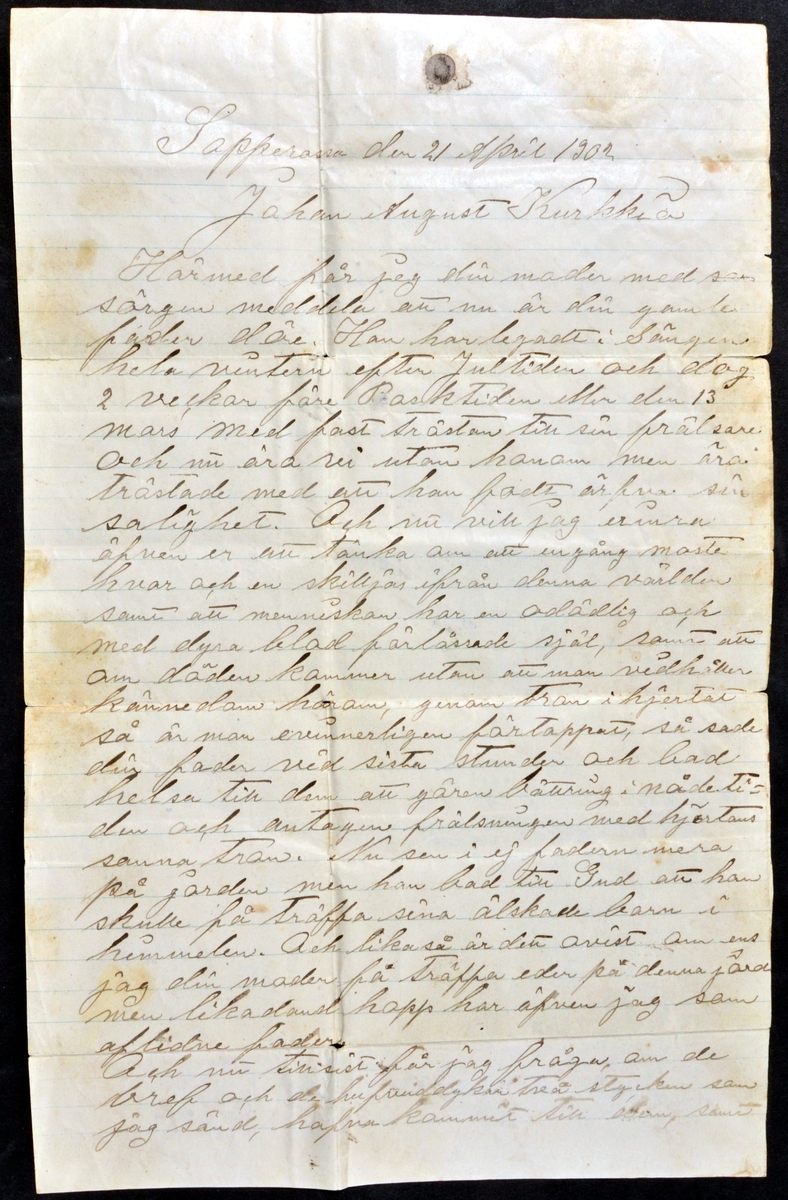 Sapperassa den 21 April 1902
Johan August Kurkkio
Härmed får jeg din moder med
sorgen meddela att nu är din gamle
fader döe. Han har legadt i Sängen
hela vintern efter Jultiden och dog
2 veckor före Pasktiden eller den 13
mars med fast trostan till sin frälsare
och nu ära vi utan honom men ära
tröstade med att han fådt ärfva sin
salighet. Och nu vill jag erinra
äfven er att tänka om att engång moste
hvar och en skilljas ifrån denna världen
samt att menniskan har en odödlig och
med dyra blod förlåssade själ, samt att
om döden kommer utan att man vidhåller
kännedom härom, genom tron i hjertat
så är man evinnerligen förtappat, så sade
din fader vid sista stunder och bad
helsa till dem att gören bättring i nådeti=
den och antagen frälsningen med hjertans
sanna tron. Nu sen i ej fadern mera
på jorden men han bad till Gud att han
skulle få träffa sina älskade barn i
himmelen. Och likaså är dett ovist om ens
jag din moder få träffa eder på denna jord
men likadand hopp har äfven jag som
aflidne fader.
Och nu till sist får jag fråga, om de
bref och de tre stycken som
jag sänd, hafva kommit till samt